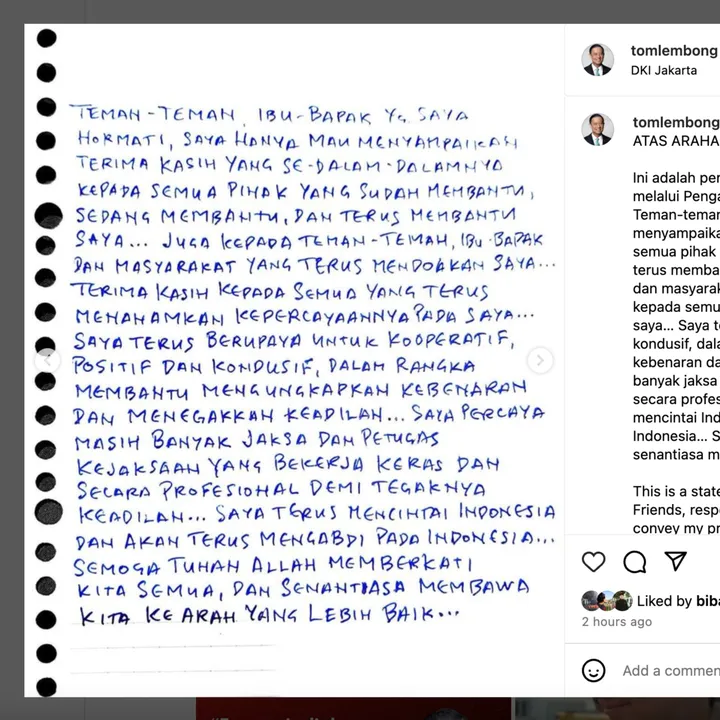 TEMAN-TEMAN, IBU-BAPAK YG SAYA
HORMATI, SAYA HANYA MAU MENYAMPAIKAN
TERIMA KASIH YANG SE-DALAM-DALAMNYA
KEPADA SEMUA PIHAK YANG SUDAH MEMBANTU,
SEDANG MEMBANTU, DAN TERUS MEMBANTU
SAYA... JUGA KEPADA TEMAN-TEMAN, IBU-BAPAK
DAN MASYARAKAT YANG TERUS MENDOAKAN SAYA...
TERIMA KASIH KEPADA SEMUA YANG TERUS
MENANAMKAN KEPERCAYAANNYA PADA SAYA...
SAYA TERUS BERUPAYA UNTUK KOOPERATIF,
POSITIF DAN KONDUSIF, DALAM RANGKA
MEMBANTU MENGUNGKAPKAN KEBENARAN
DAN MENEGAKKAN KEADILAN... SAYA PERCAYA
MASIH BANYAK JAKSA DAN PETUGAS
KEJAKSAAN YANG BEKERJA KERAS DAN
SECARA PROFESIONAL DEMI TEGAKNYA
KEADILAN... SAYA TERUS MENCINTAI INDONESIA
DAN AKAN TERUS MENGABDI PADA INDONESIA...
SEMOGA TUHAN ALLAH MEMBERKATI
KITA SEMUA, DAN SENANTIASA MEMBAWA
KITA KE ARAH YANG LEBIH BAIK...
tomlembong
DKI Jakarta
tomlembong
ATAS ARAHA
Ini adalah per
melalui Penga
Teman-teman
menyampaika
semua pihak
terus memba
dan masyarak
kepada semu
saya... Saya t
kondusif, dala
kebenaran da
banyak jaksa
secara profes
mencintai Ind
Indonesia... S
senantiasa m
This is a state
Friends, resp
convey my pr
Liked by biba
2 hours ago
Add a commen